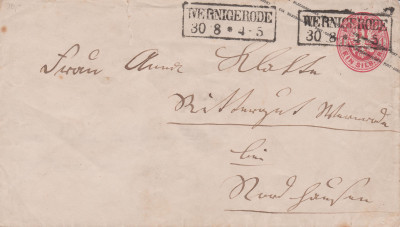 WERNIGERODE
30 8 * 4-5
WERNIGERODE
30 8 * 4-5
EIN SILBER
Frau
Klotte
Rittergut
bei
Nordhausen